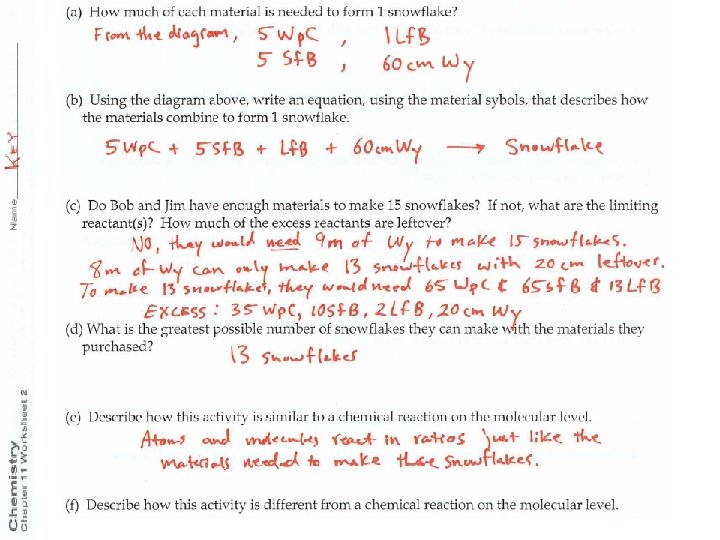 (a) How much of each material is needed to form 1 snowflake?
From the diagram, 5 WpC , 1 LfB
5 SfB , 60 cm Wy
(b) Using the diagram above, write an equation, using the material sybols, that describes how
the materials combine to form 1 snowflake.
5 WpC + 5 SfB + LfB + 60cm Wy → Snowflake
(c) Do Bob and Jim have enough materials to make 15 snowflakes? If not, what are the limiting
reactant(s)? How much of the excess reactants are leftover?
No, they would need 9m of Wy to make 15 snowflakes.
8m of Wy can only make 13 snowflakes with 20 cm leftover.
To make 13 snowflakes, they would need 65 WpC & 65 SfB & 13 LfB
EXCESS: 35 WpC, 10 SfB, 2 LfB, 20 cm Wy
(d) What is the greatest possible number of snowflakes they can make with the materials they
purchased?
13 snowflakes
(e) Describe how this activity is similar to a chemical reaction on the molecular level.
Atoms and molecules react in ratios just like the
materials needed to make these snowflakes.
(f) Describe how this activity is different from a chemical reaction on the molecular level.
Name KEY
Chemistry
Chapter 11 Worksheet 2